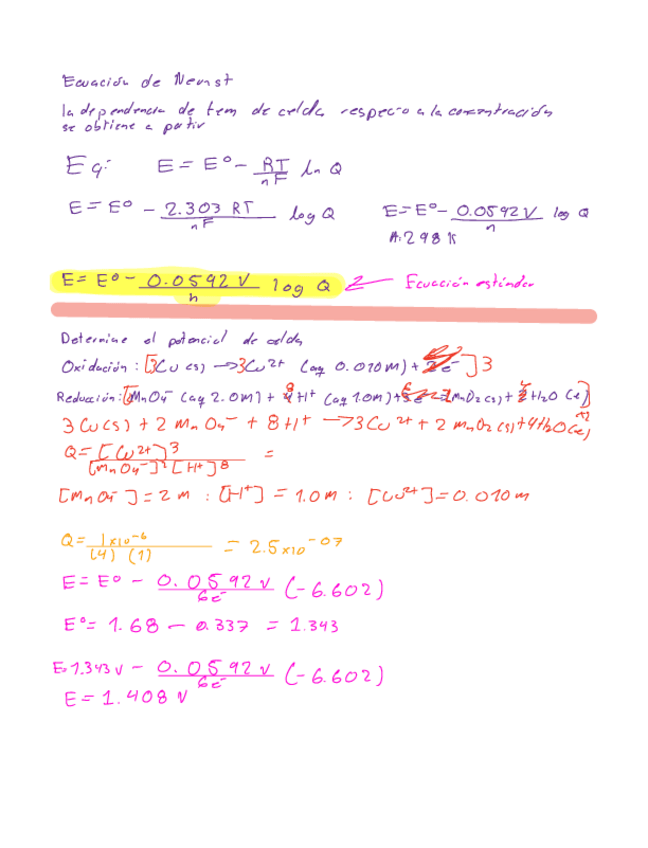 Ecuación de Nernst
la dependencia de fem de celda respecto a la concentración
se obtiene a partir
Eq: E = E° - RT/nF ln Q
E = E° - 2.303 RT/nF log Q E = E° - 0.0592 V/n log Q
A: 298 K
E = E° - 0.0592 V/n log Q ← Ecuación estándar
Determine el potencial de celda
Oxidación: [3Cu (s) → 3Cu²⁺ (aq 0.010M) + e⁻]3
Reducción: [MnO4⁻ (aq 2.0M) + H⁺ (aq 1.0M) + MnO2 (s) + H2O (l)]
3 Cu(s) + 2 MnO4⁻ + 8H⁺ → 3Cu²⁺ + 2 MnO2 (s) + 4H2O (l)
Q = [Cu²⁺]³/[MnO4⁻]²[H⁺]⁸ =
[MnO4⁻] = 2 M : [H⁺] = 1.0 M : [Cu²⁺] = 0.010 M
Q = 1x10⁻⁶/(4)(1) = 2.5x10⁻⁰⁷
E = E° - 0.0592 V/6e⁻ (-6.602)
E° = 1.68 - 0.337 = 1.343
E = 1.343 V - 0.0592 V/6e⁻ (-6.602)
E = 1.408 V